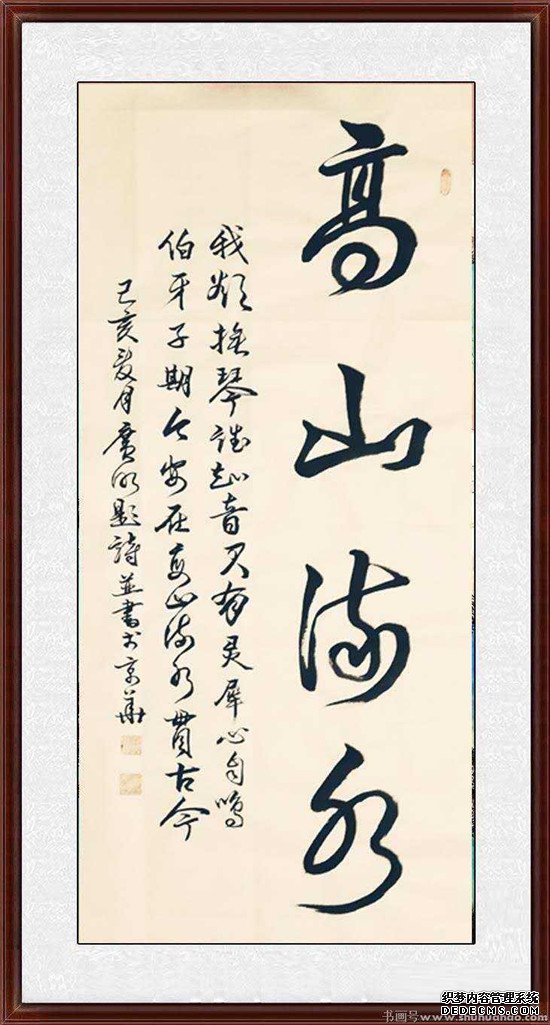 高山流水
我欲抚琴谁知音只有灵犀心自鸣
伯牙子期今安在高山流水贯古今
己亥夏月广明题诗并书于京华
织梦内容管理系统
DEDECMS.COM
书画号www.shuhuahao.com